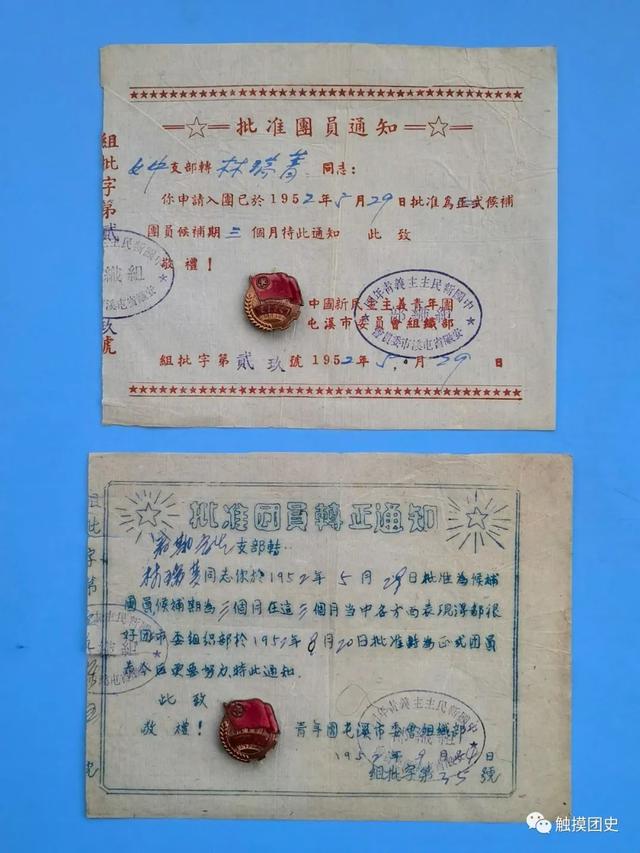 批准團員通知
組批字第貳 玖號
女中支部轉 林瑞菁 同志：
你申請入團已於1952年5月29日批准為正式候補
團員候補期三個月特此通知 此致
敬禮！
中國新民主主義青年團
屯溪市委員會組織部
組批字第貳玖號 1952年5月29日
中國新民主主義青年團
組織部
安徽省屯溪市委員會
批准团員轉正通知
支部轉：
林瑞菁同志你於1952年5月29日批准為候補
團員候補期為三個月在這三個月當中各方面表現得都很
好团市委組織部於1952年8月20日批准轉為正式团員
今后更要努力特此通知.
此致
敬禮！
青年團屯溪市委會組織部
1952年9月4日
組批字第35號
触摸团史